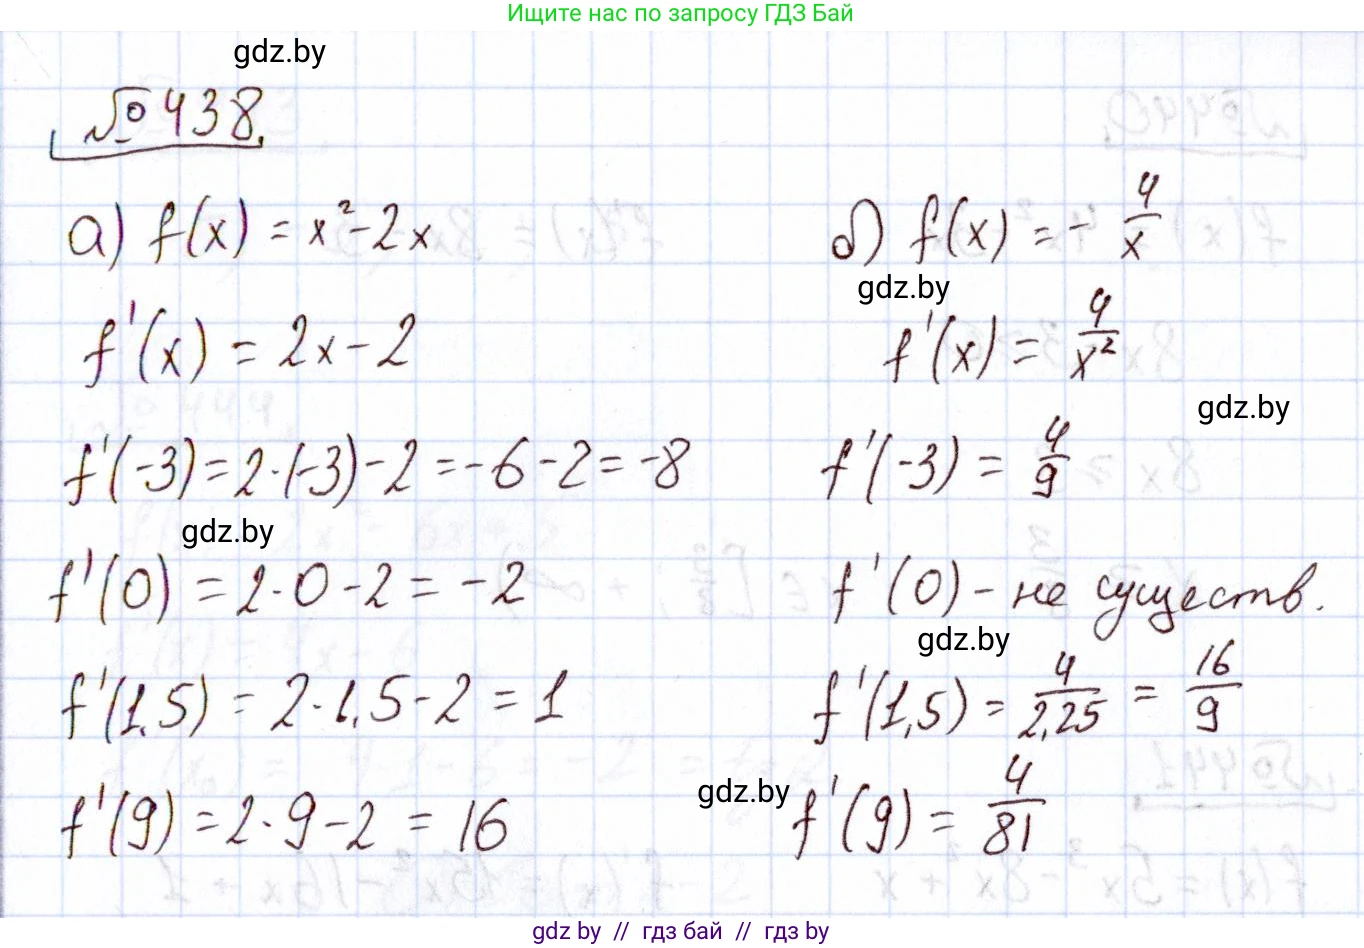 Ищите нас по запросу ГДЗ Бай
gdz.by
№438.
а) f(x) = x² - 2x
f'(x) = 2x - 2
f'(-3) = 2·(-3) - 2 = -6 - 2 = -8
gdz.by
f'(0) = 2·0 - 2 = -2
f'(1,5) = 2·1,5 - 2 = 1
f'(9) = 2·9 - 2 = 16
б) f(x) = - 4/x
gdz.by
f'(x) = 4/x²
gdz.by
f'(-3) = 4/9
f'(0) - не существ.
gdz.by
f'(1,5) = 4/2,25 = 16/9
gdz.by
f'(9) = 4/81
gdz by // гдз бай // гдз by